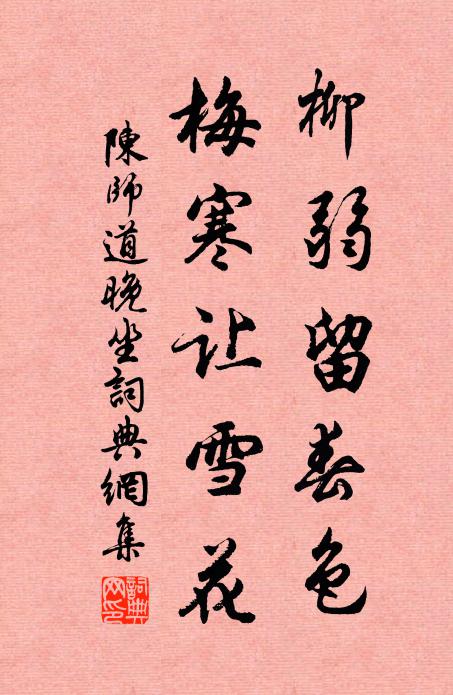 柳弱留春色
梅寒让雪花
陳師道晚坐詞典網集
詞典网印